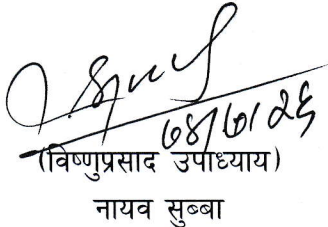 ७४/७/२६
(विष्णुप्रसाद उपाध्याय)
नायव सुब्बा